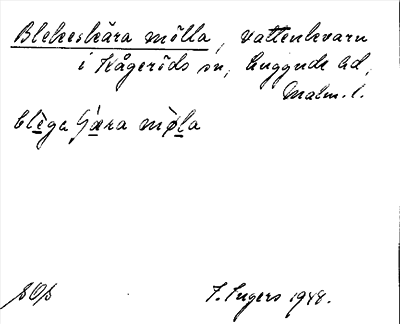 Blekeskära mölla, vattenkvarn
i Kågeröds sn, Luggude hd,
Malm. l.
blèga ſjæra mø̀la
SOS
I. Ingers 1944.